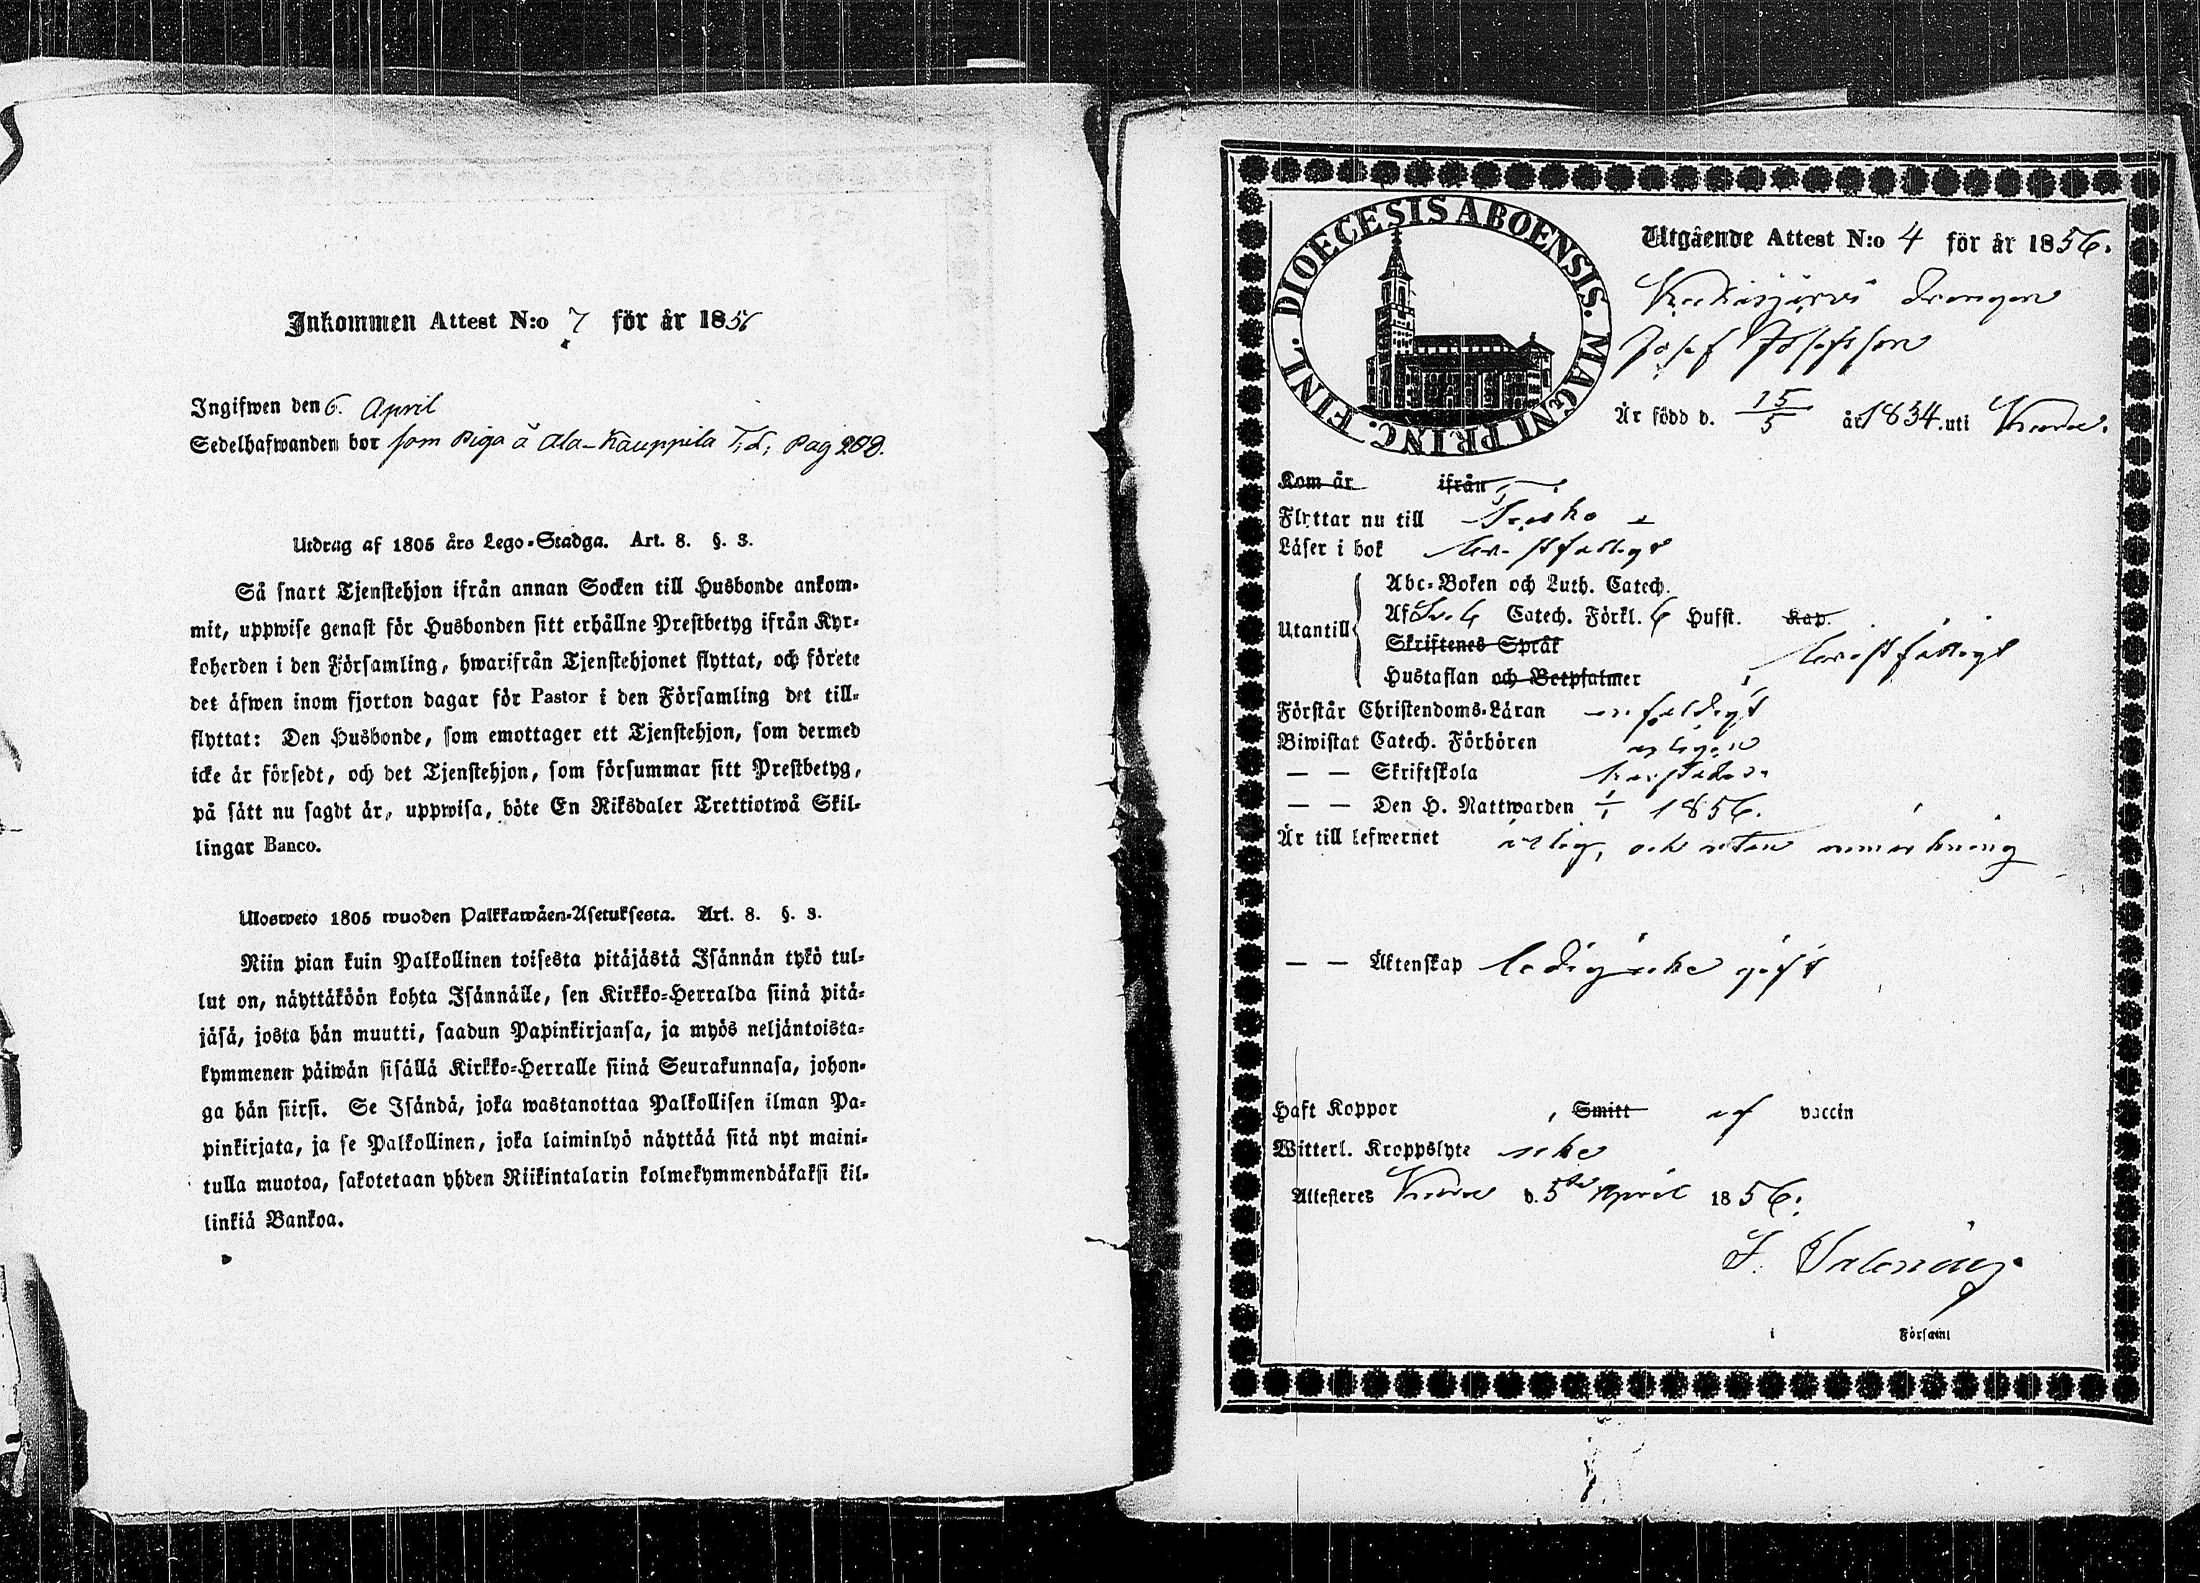 Inkommen Attest N:o 7 för år 1856
Ingifwen den 6. April
Sedelhafwanden bor som Piga å Ala-Kauppila T.d; Pag 208.
Utdrag af 1805 års Lego-Stadga. Art. 8. §. 3.
Så snart Tjenstehjon ifrån annan Socken till Husbonde ankom-
mit, uppwise genast för Husbonden sitt erhållne Prestbetyg ifrån Kyr-
koherden i den Församling, hwarifrån Tjenstehjonet flyttat, och förete
det äfwen inom fjorton dagar för Pastor i den Församling det till-
flyttat: Den Husbonde, som emottager ett Tjenstehjon, som dermed
icke är försedt, och det Tjenstehjon, som försummar sitt Prestbetyg,
på sätt nu sagdt är, uppwisa, böte En Riksdaler Trettiotwå Skil-
lingar Banco.
Ulosweto 1805 wuoden Palkkawäen-Asetuksesta. Art. 8. §. 3.
Niin pian kuin Palkollinen toisesta pitäjästä Isännän tykö tul-
lut on, näyttäköön kohta Isännälle, sen Kirkko-Herralda siinä pitä-
jäsä, josta hän muutti, saadun Papinkirjansa, ja myös neljäntoista-
kymmenen päiwän sisällä Kirkko-Herralle siinä Seurakunnasa, johon-
ga hän siirsi. Se Isändä, joka wastanottaa Palkollisen ilman Pa-
pinkirjata, ja se Palkollinen, joka laiminlyö näyttää sitä nyt maini-
tulla muotoa, sakotetaan yhden Riikintalarin kolmekymmendäkaksi kil-
linkiä Bankoa.
DIOECESIS ABOENSIS. MAGNI PRINC. FINL.
Utgående Attest N:o 4 för år 1856.
drengen
Josef Josefsson
Är född d. 15/5 år 1834. uti
Kom år ifrån
Flyttar nu till
Läser i bok
Abc-Boken och Luth. Catech.
Utantill Af Sv. 6 Catech. Förkl. 6 Hufst. Kap.
Skriftenes Språk
Hustaflan och Botpsalmer
Förstår Christendoms-Läran enfaldigt
Biwistat Catech. Förhören
— — Skriftskola
— — Den H. Nattwarden 1856.
Är till lefwernet ärlig, och utan anmärkning
— — Äktenskap ledig icke gift
Haft Koppor, Smitt af vaccin
Witterl. Kroppslyte icke
Attesteres d. 5te April 1856.
i Församl